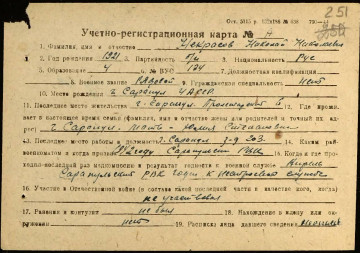 251
Учетно-регистрационная карта № Н
1. Фамилия, имя и отчество Некрасов Николай Николаевич
2. Год рождения 1921 3. Партийность б/п 4. Национальность Рус
5. Образование 4 6. № ВУС 124 7. Должностная квалификация
8. Военное звание Рядовой 9. Гражданская специальность нет
10. Место рождения г. Сарапул УАССР
11. Последнее место жительства г. Сарапул, 12. Где прожи-
вает в настоящее время семья (фамилия, имя и отчество жены или родителей и точный их ад-
рес) г. Сарапул мать
13. Последнее место работы и должность г. Сарапул з-д 203 14. Каким рай-
военкоматом и когда призван Сарапульским РВК 15. Когда и где про-
ходил последний раз медкомиссию и результат годности к военной службе
Сарапульский РВК годен к нестроевой службе
16. Участие в Отечественной войне (в составе какой последней части и качестве кого, когда)
не участвовал
17. Ранения и контузии не был 18. Нахождение в плену или ок-
ружении нет 19. Расписка лица давшего сведения